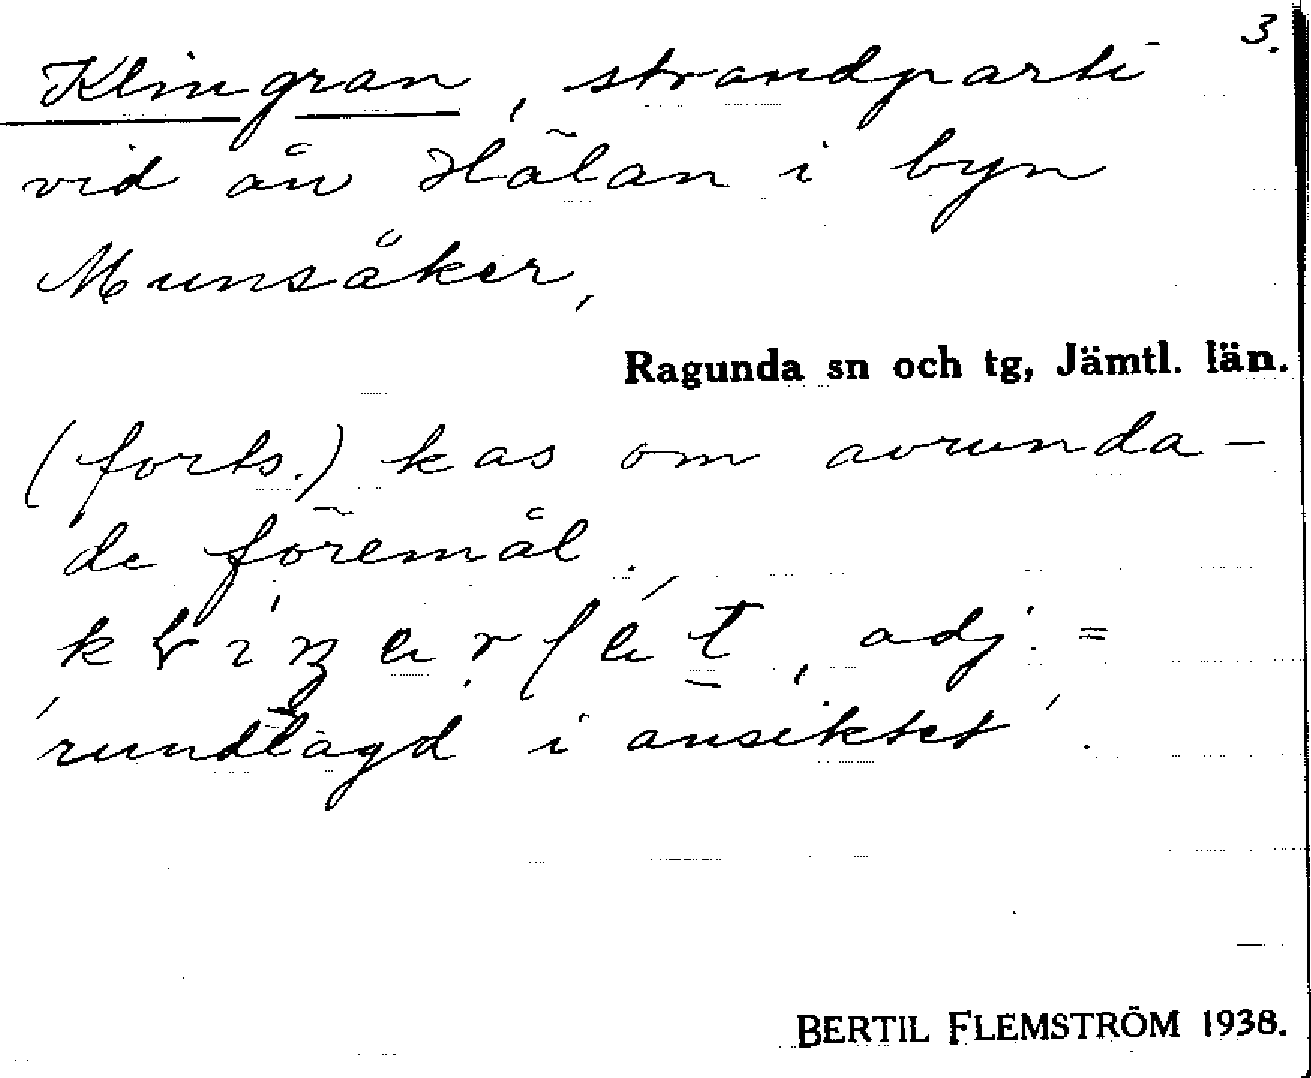 3.
Klingran, strandparti
vid ån Hälan i byn
Munsåker,
Ragunda sn och tg, Jämtl. län.
(forts.) kas om avrunda-
de föremål.
adj. =
'rundlagd i ansiktet'.
BERTIL FLEMSTRÖM 1938.